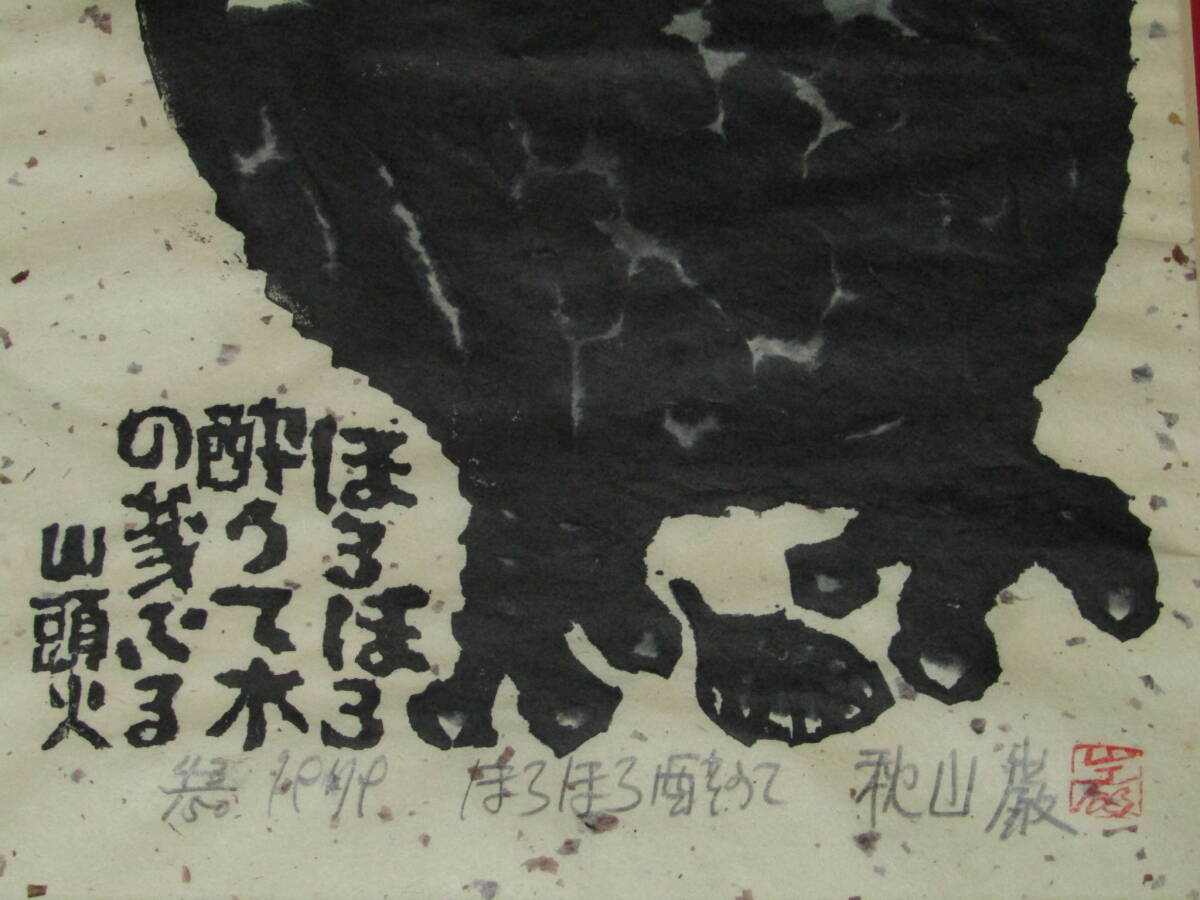 ほろほろ
酔うて木
の葉ふる
山頭火
1979 ほろほろ酔うて 秋山巌